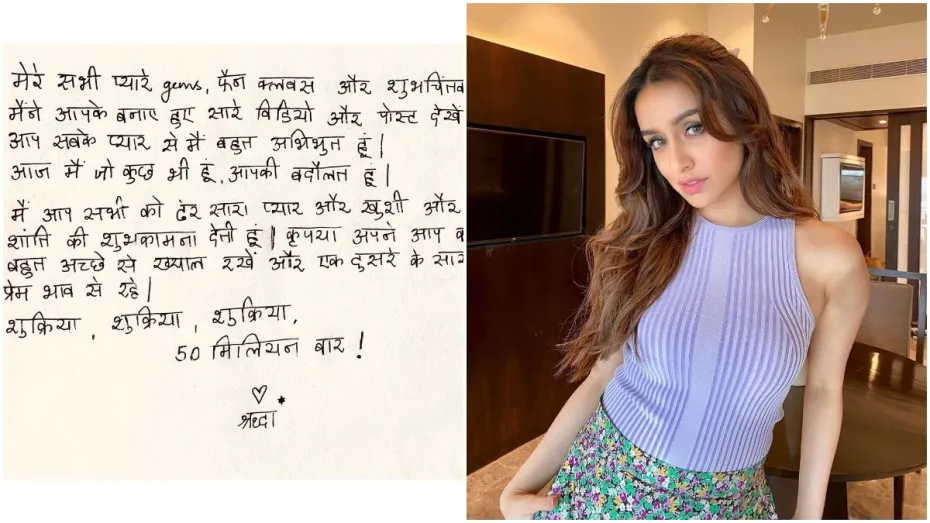 मेरे सभी प्यारे gems, फैन क्लबस और शुभचिंतक
मैंने आपके बनाए हुए सारे विडियो और पोस्ट देखें
आप सबके प्यार से मैं बहुत अभिभुत हूं|
आज मैं जो कुछ भी हूं, आपकी बदौलत हूं|
मैं आप सभी को ढेर सारा प्यार और खुशी और
शांति की शुभकामना देती हूं| कृपया अपने आप
बहुत अच्छे से ख्याल रखें और एक दुसरे के
प्रेम भाव से रहे|
शुक्रिया, शुक्रिया, शुक्रिया,
50 मिलियन बार!
श्रध्दा